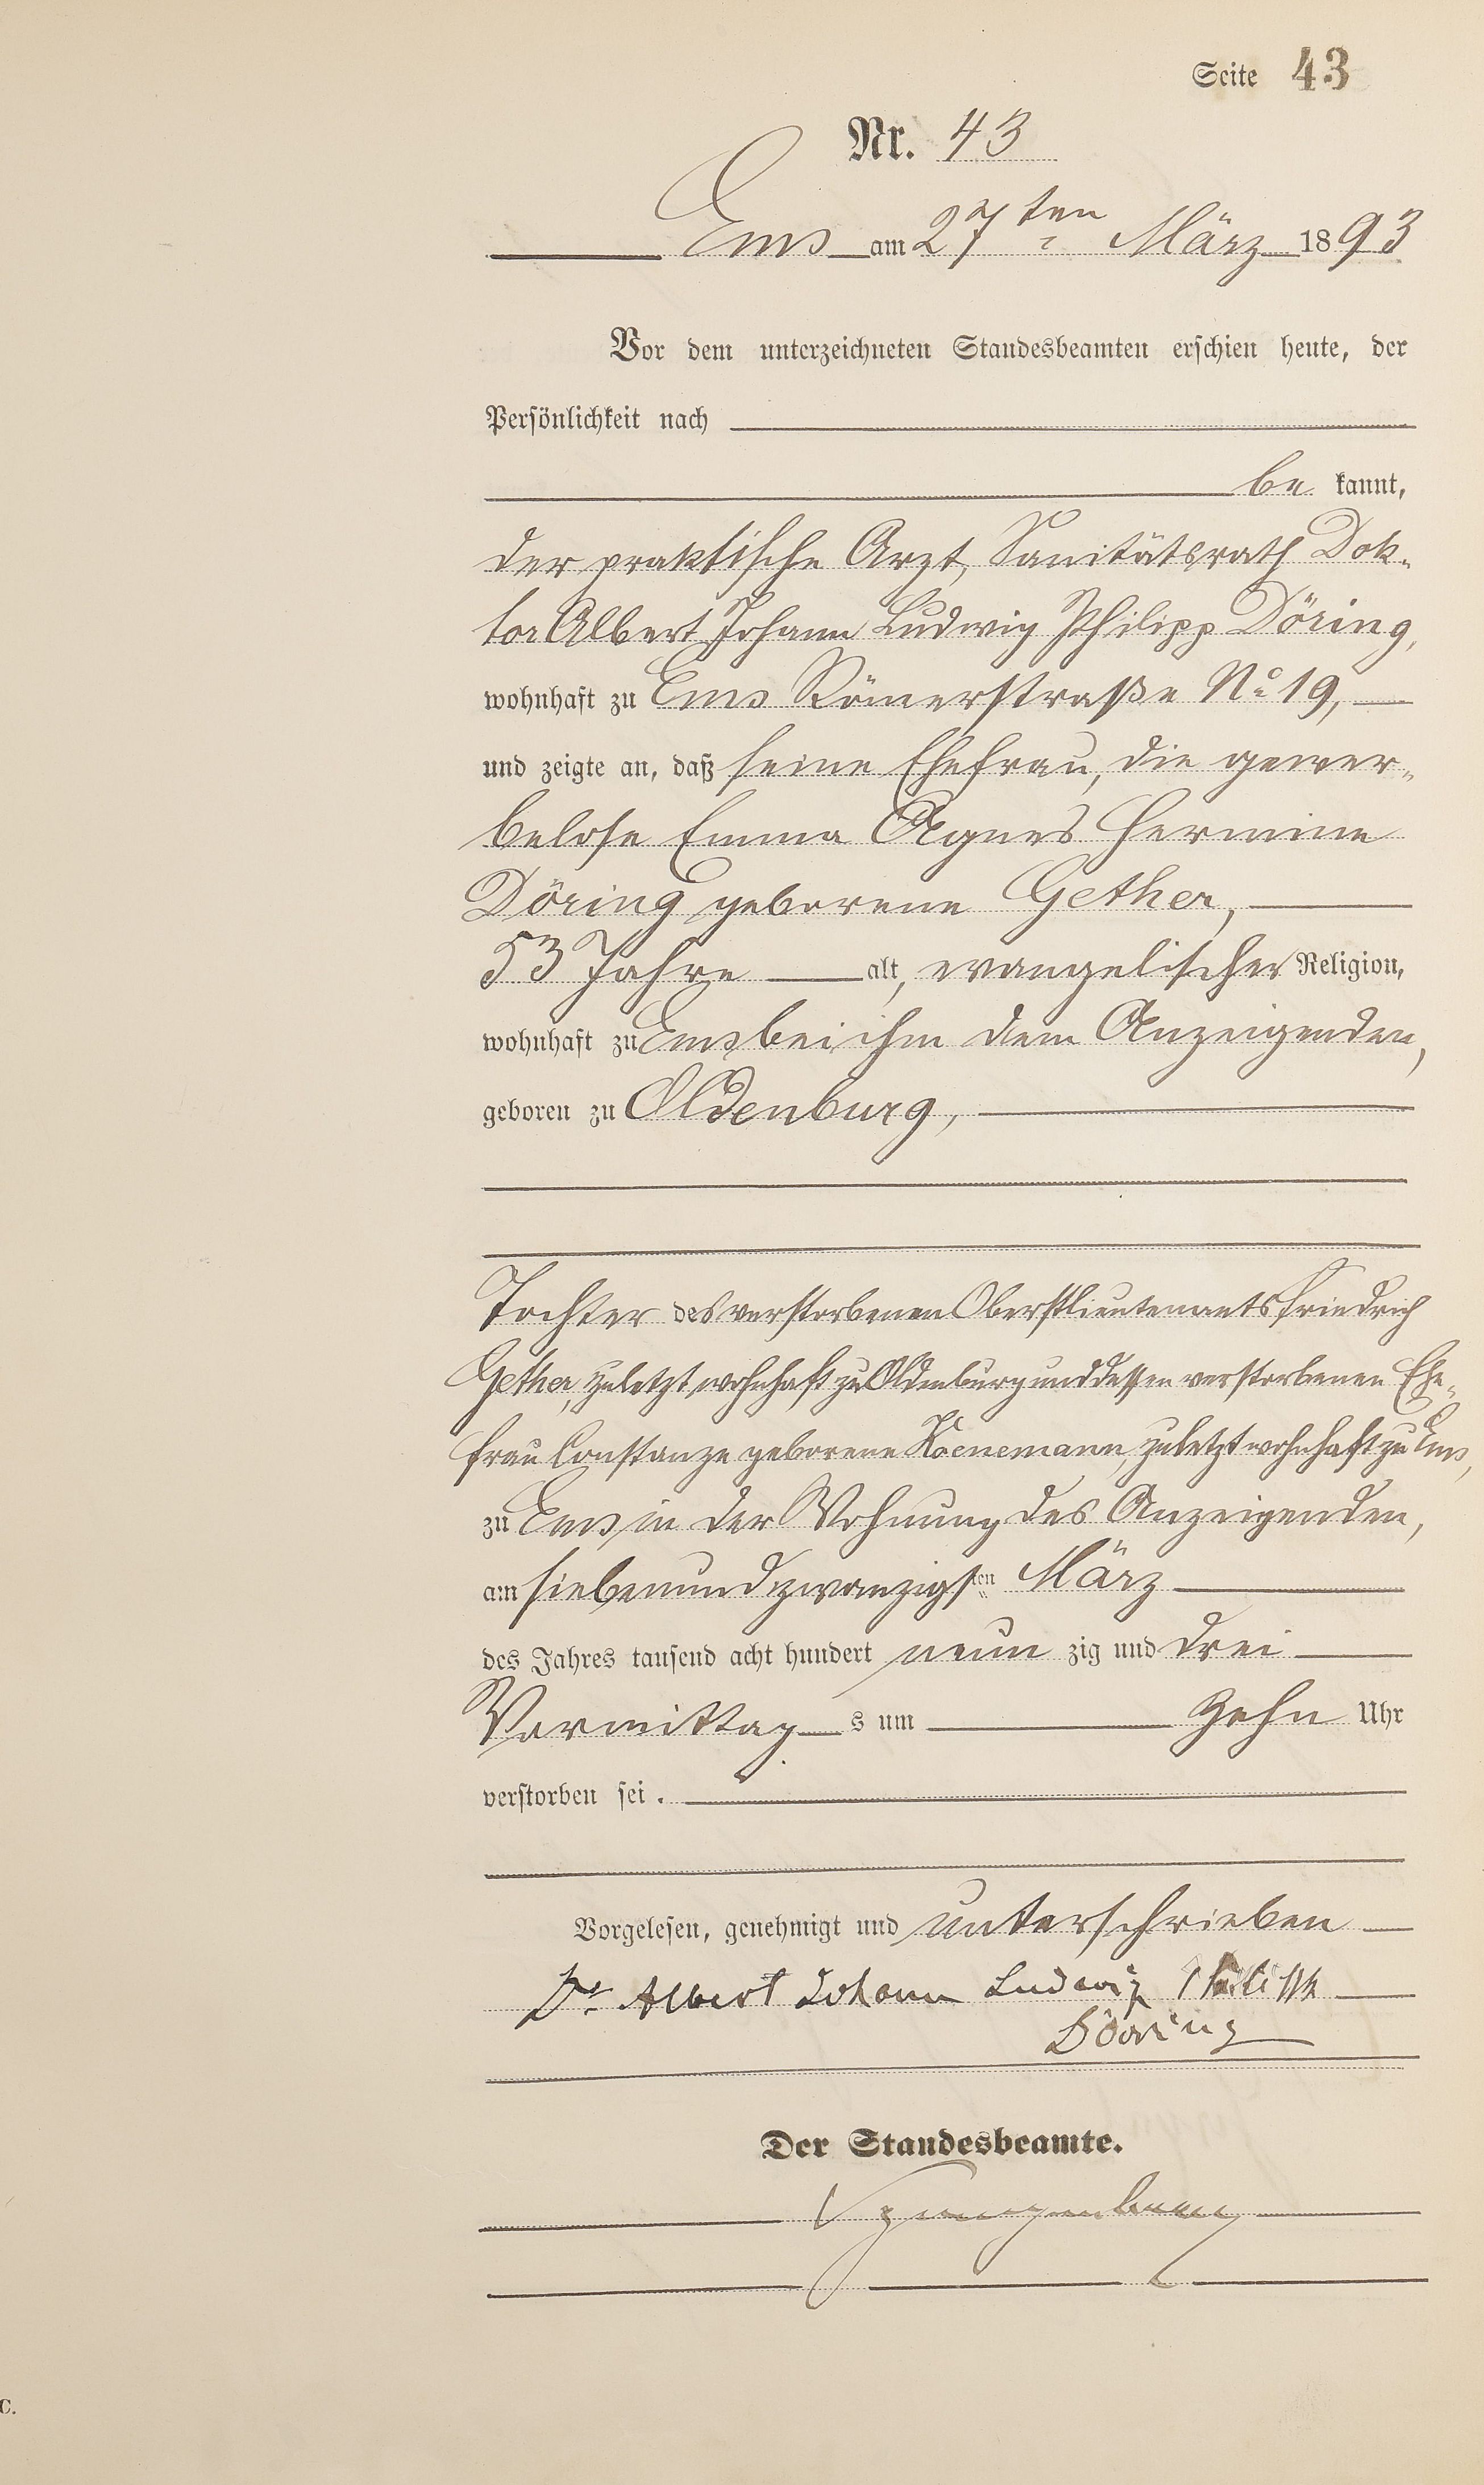 Seite 43
Nr. 43
Ems am 27ten März 1893
Vor dem unterzeichneten Standesbeamten erschien heute, der
Persönlichkeit nach
be kannt,
der praktische Arzt, Sanitätsrath Dok-
tor Albert Johann Ludwig Philipp Döring,
wohnhaft zu Ems Römerstraße No 19,
und zeigte an, daß seine Ehefrau, die gewer-
belose Emma Agnes Hermine
Döring geborene Gether,
53 Jahre alt, evangelischer Religion,
wohnhaft zu Ems bei ihm dem Anzeigenden,
geboren zu Oldenburg,
Tochter des verstorbenen Oberstlieutenants Friedrich
Gether, zuletzt wohnhaft zu Oldenburg und dessen verstorbenen Ehe-
frau Constanze geborene Koenemann, zuletzt wohnhaft zu Ems,
zu Ems in der Wohnung des Anzeigenden,
am siebenundzwanzigsten März
des Jahres tausend acht hundert neun zig und drei
Vormittag s um Zehn Uhr
verstorben sei.
Vorgelesen, genehmigt und unterschrieben
Dr Albert Johann Ludwig Philipp
Döring
Der Standesbeamte.
C.